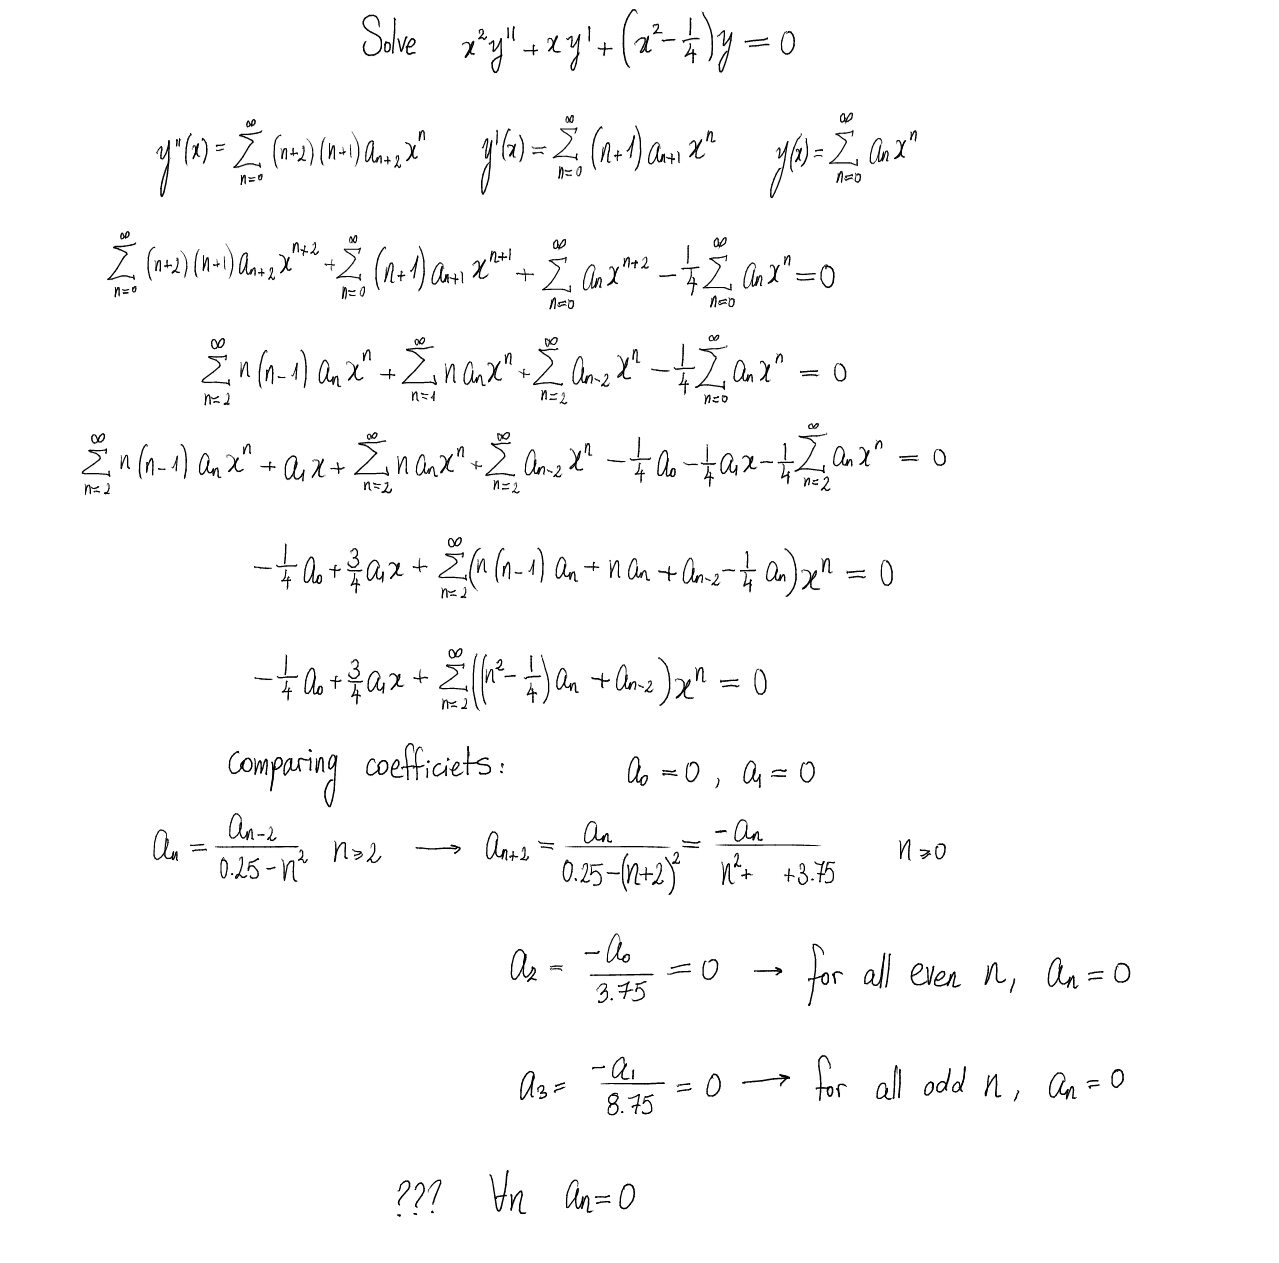 Solve x²y'' + xy' + (x² - 1/4)y = 0
y''(x) = ∑_{n=0}^{∞} (n+2)(n+1)a_{n+2}x^n y'(x) = ∑_{n=0}^{∞} (n+1)a_{n+1}x^n y(x) = ∑_{n=0}^{∞} a_n x^n
∑_{n=0}^{∞} (n+2)(n+1)a_{n+2}x^{n+2} + ∑_{n=0}^{∞} (n+1)a_{n+1}x^{n+1} + ∑_{n=0}^{∞} a_n x^{n+2} - 1/4 ∑_{n=0}^{∞} a_n x^n = 0
∑_{n=2}^{∞} n(n-1)a_n x^n + ∑_{n=1}^{∞} n a_n x^n + ∑_{n=2}^{∞} a_{n-2}x^n - 1/4 ∑_{n=0}^{∞} a_n x^n = 0
∑_{n=2}^{∞} n(n-1)a_n x^n + a_1x + ∑_{n=2}^{∞} n a_n x^n + ∑_{n=2}^{∞} a_{n-2}x^n - 1/4 a_0 - 1/4 a_1x - 1/4 ∑_{n=2}^{∞} a_n x^n = 0
-1/4 a_0 + 3/4 a_1x + ∑_{n=2}^{∞} (n(n-1)a_n + n a_n + a_{n-2} - 1/4 a_n)x^n = 0
-1/4 a_0 + 3/4 a_1x + ∑_{n=2}^{∞} ((n² - 1/4)a_n + a_{n-2})x^n = 0
comparing coefficiets: a_0 = 0, a_1 = 0
a_n = a_{n-2}/(0.25-n²) n≥2 → a_{n+2} = a_n/(0.25-(n+2)²) = -a_n/(n²+ +3.75) n≥0
a_2 = -a_0/3.75 = 0 → for all even n, a_n = 0
a_3 = -a_1/8.75 = 0 → for all odd n, a_n = 0
??? ∀n a_n = 0